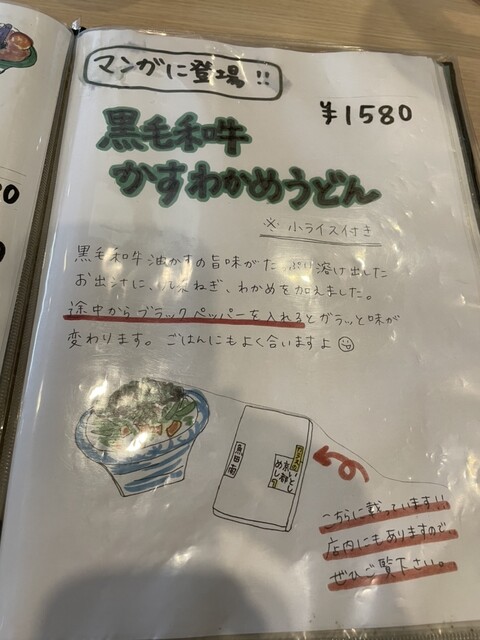 マンガに登場!!
¥1580
黒毛和牛
かすわかめうどん
※ 小ライス付き
黒毛和牛油かすの旨味がたっぷり溶け出した
お出シに、九条ねぎ、わかめを加えました。
途中からブラックペッパーを入れるとガラッと味が
変わります。ごはんにもよく合いますよ
いとし
京都
めし
魚田南
こちらに載っています!!
店内にもありますので、
ぜひご覧下さい。